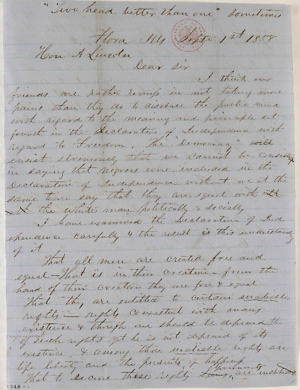 "Two head better than one" sometimes
Flora Ills Sept 1st 1858
"Hon A Lincoln
Dear Sir
I think our
friends are rather remiss in not taking more
pains than they do to disabuse the public mind
with regard to the meaning and principle set
forth in the Declaration of Independence with
regard to Freedom. The Democracy will
insist strenuously that we cannot be consistent
in saying that negroes were included in the
Declaration of Independence without at the
same time say that they are equal with
the white man politically & socially
I have examined the Declaration of Ind
ependence carefully & the result is this understanding
of it
That all men are created free and
equal - That is in their creation - from the
hand of their creator they are free & equal
That they are entitled to certain inalienable
rights - rights coexistent with man's
existence & though one should be deprived
of such rights yet he is not deprived of its
existence & among those inalienable rights are
life liberty and the pursuit of happiness
That to secure these rights are instituted